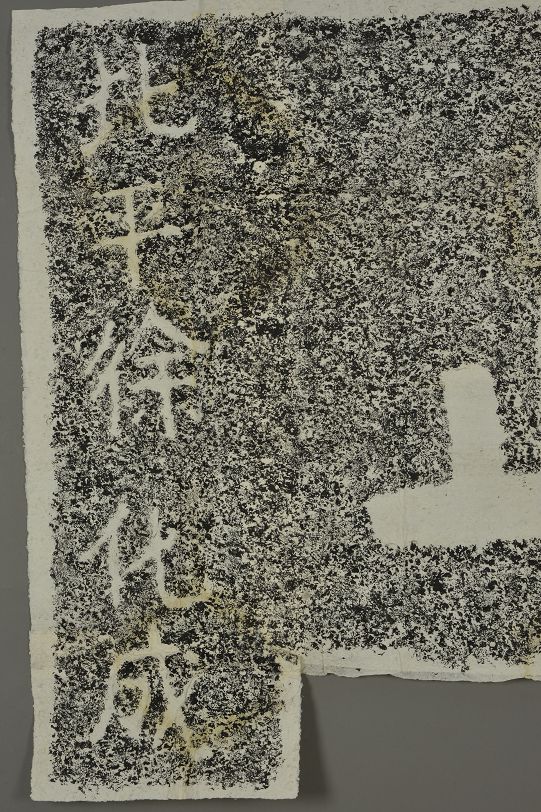 北平徐化成